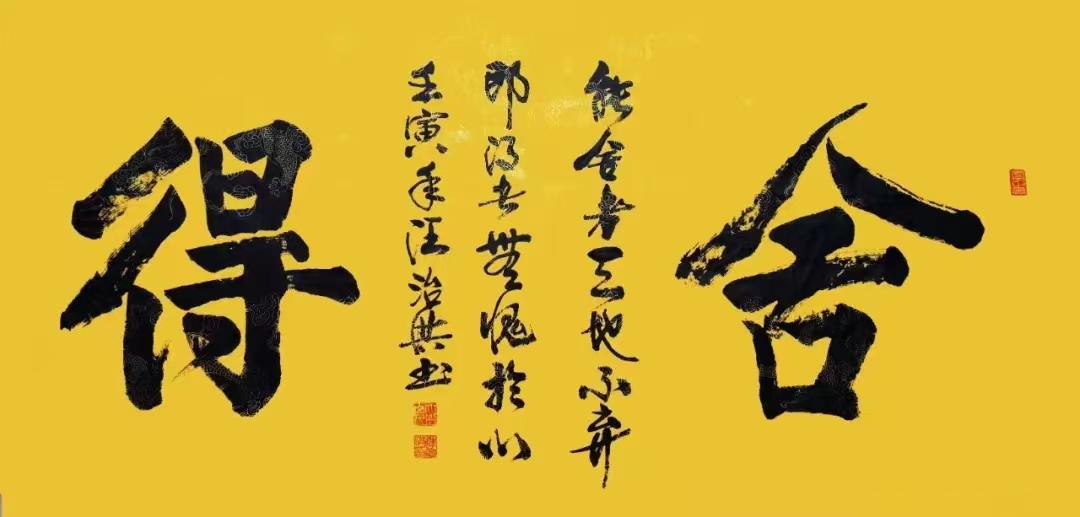 舍
能舍者天地不弃
即得者無愧於心
壬寅年汪治典书
得